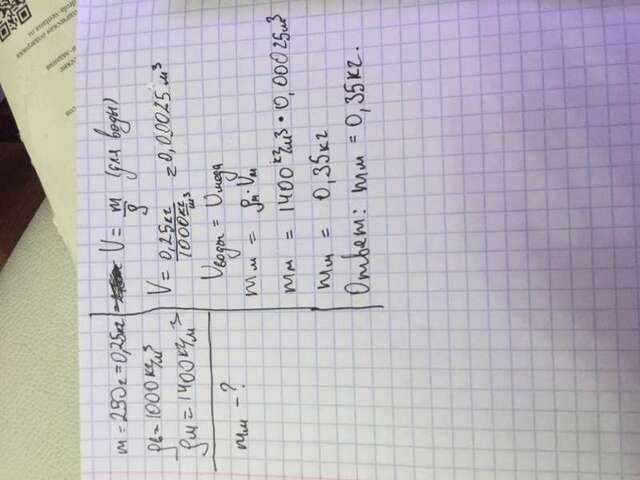 m = 250г = 0,25кг
ρв = 1000 кг/м³
ρм = 1400 кг/м³
mм - ?
V = m/ρ (для воды)
V = 0,25кг / 1000 кг/м³ = 0,00025 м³
Vводы = Vмеда
mм = ρм · Vм
mм = 1400 кг/м³ · 0,00025м³
mм = 0,35кг
Ответ: mм = 0,35кг.